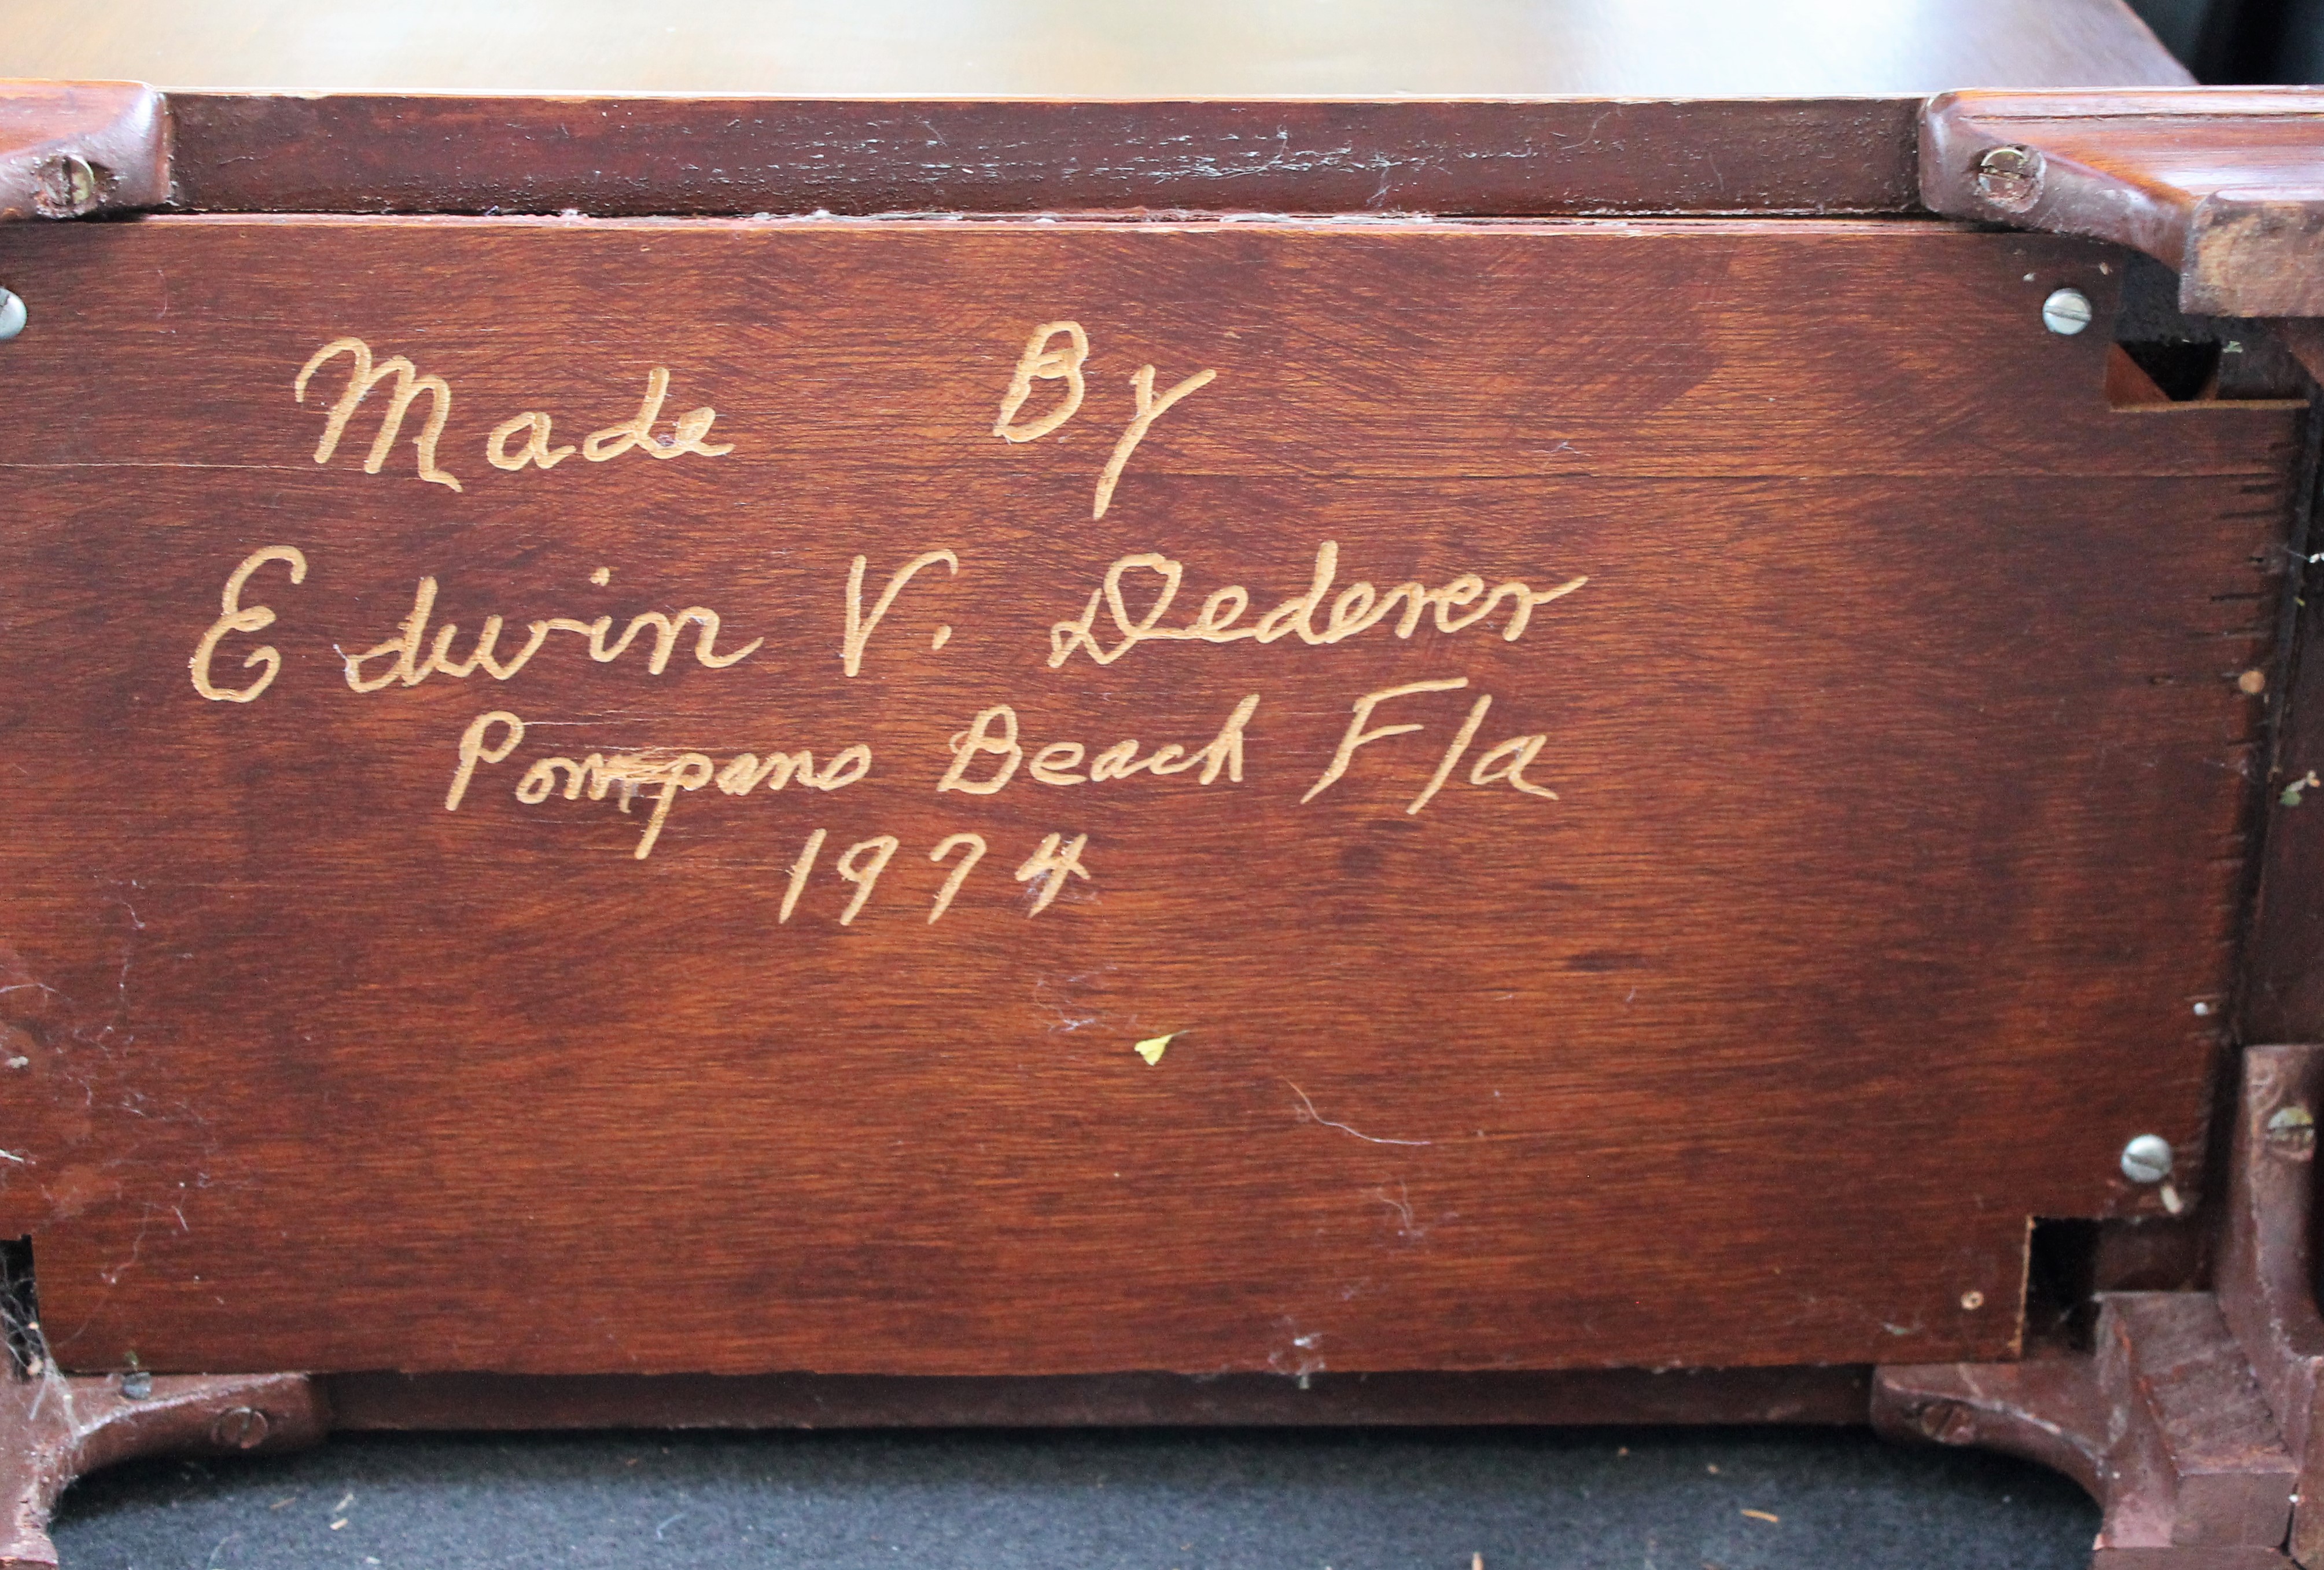 Made By
Edwin V. Dederer
Pompano Beach Fla
1974